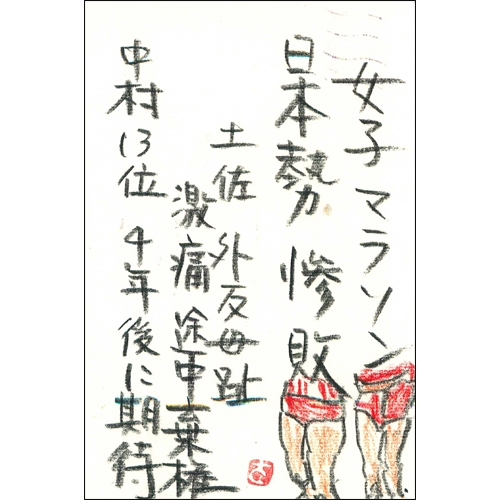 女子マラソン
日本勢 惨敗
土佐 外反母趾
激痛 途中棄権
中村13位 4年後に期待